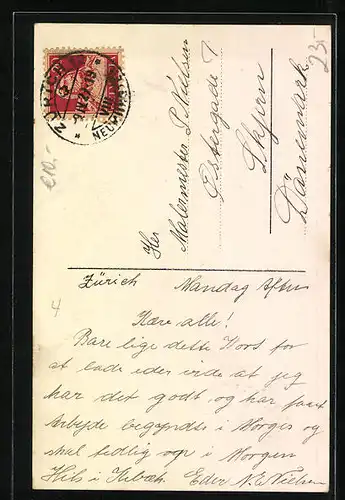 ZÜRICH
9.IV.27.-19
VIII
NEUMÜNSTER
23.-
€10.-
Her
Malermester S Nielsen
Østergade 7
Skjern
Dänemark
4
Zürich Mandag Aften
Kære alle!
Bare lige dette Kort for
at lade eder vide at jeg
har det godt og har faaet
Arbejde begyndte i Morges og
skal tidlig op i Morgen
Hils i Eder Nielsen